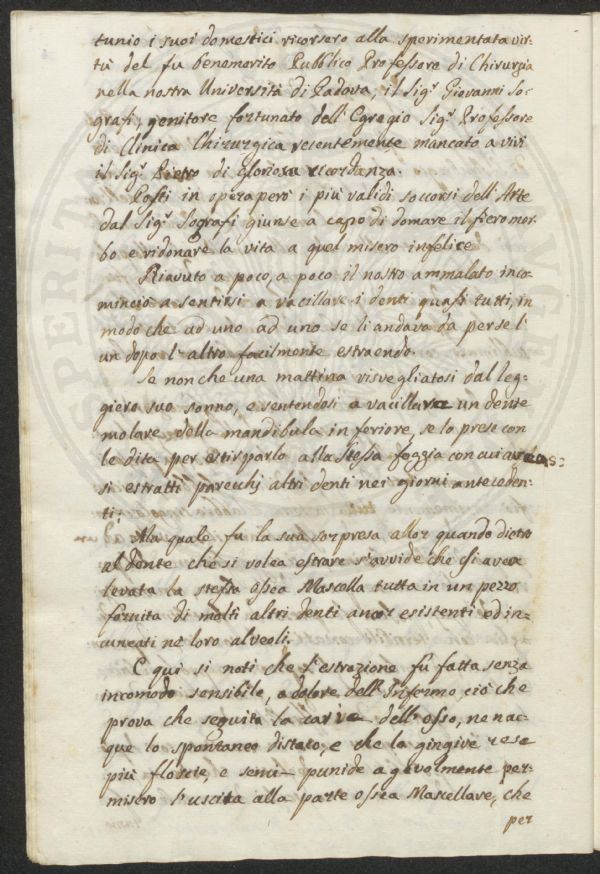 tunio i suoi domestici ricorsero alla sperimentata vir=
tù del fu benemerito Pubblico Professore di Chirurgia
nella nostra Università di Padova, il Sigr Giovanni So=
grafi, genitore fortunato dell'Egregio Sigr Professore
di Clinica Chirurgica recentemente mancato a vivi
il Sigr Pietro di gloriosa ricordanza.
Posti in opera però i più validi soccorsi dell'Arte
dal Sigr Sografi giunse a capo di domare il fiero mor=
bo e ridonare la vita a quel misero infelice
Riavuto a poco, a poco il nostro ammalato inco=
minciò a sentirsi a vacillare i denti quasi tutti, in
modo che ad uno ad uno se li andava da perse l'
un dopo l'altro facilmente estraendo.
Se non che una mattina risvegliatosi dal leg=
giero suo sonno, e sentendosi a vacillare un dente
molare della mandibula inferiore, se lo prese con
le dita per estirparlo alla stessa foggia con cui aveas=
si estratti parecchj altri denti nei giorni anteceden=
ti.
Ma quale fu la sua sorpresa allor quando dietro
al dente che si volea estrare s'avvide che si avea
levata la stessa ossea Mascella tutta in un pezzo
fornita di molti altri denti ancor esistenti ed in=
cuneati ne loro alveoli.
E qui si noti che l'estrazione fu fatta senza
incomodo sensibile, a dolore dell'Infermo, ciò che
prova che seguita la carie dell'osso, ne nac=
que lo spontaneo distaco, e che la gingive rese
più floscie, e semi- agevolmente per=
misero l'uscita alla parte ossea Mascellare, che
per